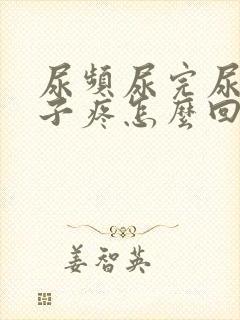 尿頻尿完尿
子疼怎麼回
姜智英